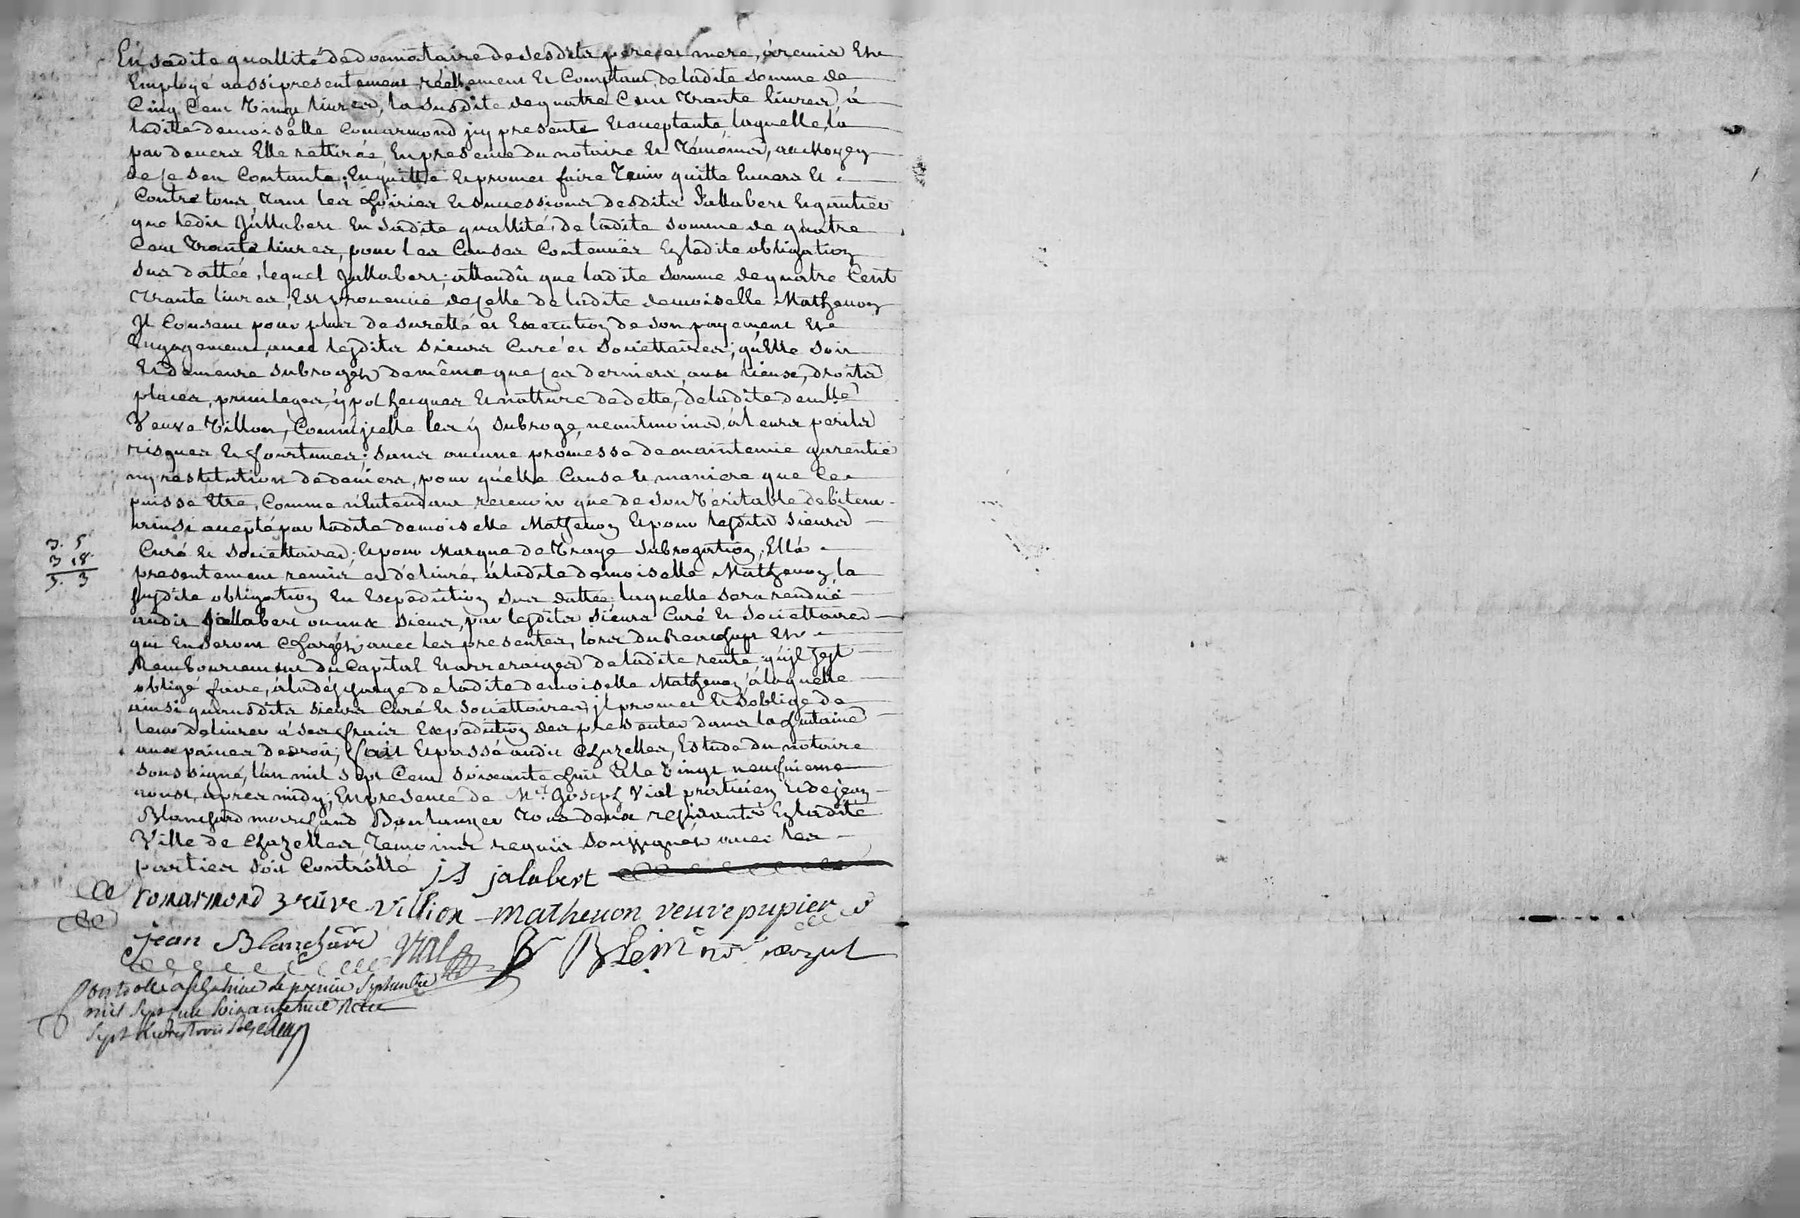 En sadite quallité de donnataire de sesdits pere et mere, à remis et
employé aussi presentement réellement et comptant de ladite somme de
Cinq Cent vingt livres, la susdite de quatre Cent trante livres, à
ladite demoiselle Comarmond jcy presente et aceptante, laquelle la
par devers elle rettirée, en presence du notaire et témoins, au moyen
de ce s'en contante, en quitte et promet faire tenir quitte envers et
contre tous, tant les hoiries et successions desdits Jallabert et gautier
que ledit Jallabert en sadite quallité, de ladite somme de quatre
Cent trante livres, pour les causes contenuës en ladite obligation
sus dattée, lequel Jallabert, attandû que ladite somme de quatre Cent
trante livres, est provenuë de celle de ladite demoiselle Mathevon
Jl consent pour plus de suretté et execution de son payement et
engagement, avec lesdits sieurs Curé et societtaires, qu'elle soit
et demeure subrogée de même que ces derniers, aux lieux, droits
places, privileges, ypothecques et natture de dette, de ladite demlle
veuve villion, comme jcelle les y subroge, neantmoins, à leurs perils
risques et fourtunes, sans aucune promesse de maintenie garentie
ny restitution de deniers, pour quelle cause et maniere que ce
puisse etre, comme n'entendant recevoir que de son véritable debiteur
ainsi acepté par ladite demoiselle Mathevon et pour lesdits sieurs
Curé et societtaires, et pour marque de traye subrogation, ella
presentement remis et délivré, à ladite demoiselle Mathevon, la
susdite obligation en expedition sus dattée, laquelle sera renduë
audit Jallabert ou aux sieurs, par lesdits sieurs Curé et societtaires
qui en seront chargés avec les presentes, lors du rachapt et
remboursement du capital et arreraiges de ladite rente, qu'jl s'est
obligé faire, à la décharge de ladite demoiselle Mathevon, à laquelle
ainsi qu'ausdits sieurs Curé et societtaires jl promet et s'oblige de
leur delivrer à ses frais expedition des presentes dans la huitaine
aux peines de droit, fait et passé audit Chazelles, estude du notaire
soussigné, l'an mil sept cent soixante huit et le vingt neufvieme
aoust, apres midy, en presence de Mr Joseph Vial praticien et de jean
Blanchard marchand Boulanger tous deux residants en ladite
Ville de Chazelles, témoins requis soussignés avec les
parties soit controllé
3. 5
3 18
3. 3
js jalabert
Comarmond veuve villion mathevon veuve pupier
jean Blanchard vial
Controllé à St Chazelles le premier septembre
mil sept cent soixante huit Reçu
sept livres trois sols